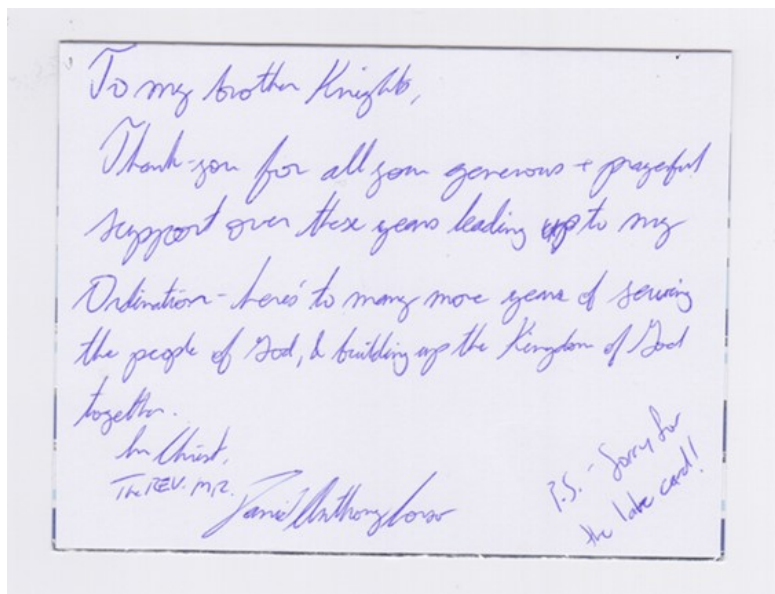 To my brother Knights,
Thank-you for all your generous + prayerful
support over these years leading up to my
Ordination - here's to many more years of serving
the people of God, & building up the Kingdom of God
together.
In Christ,
The REV. MR.
Daniel Anthony
P.S. - Sorry for
the late card!